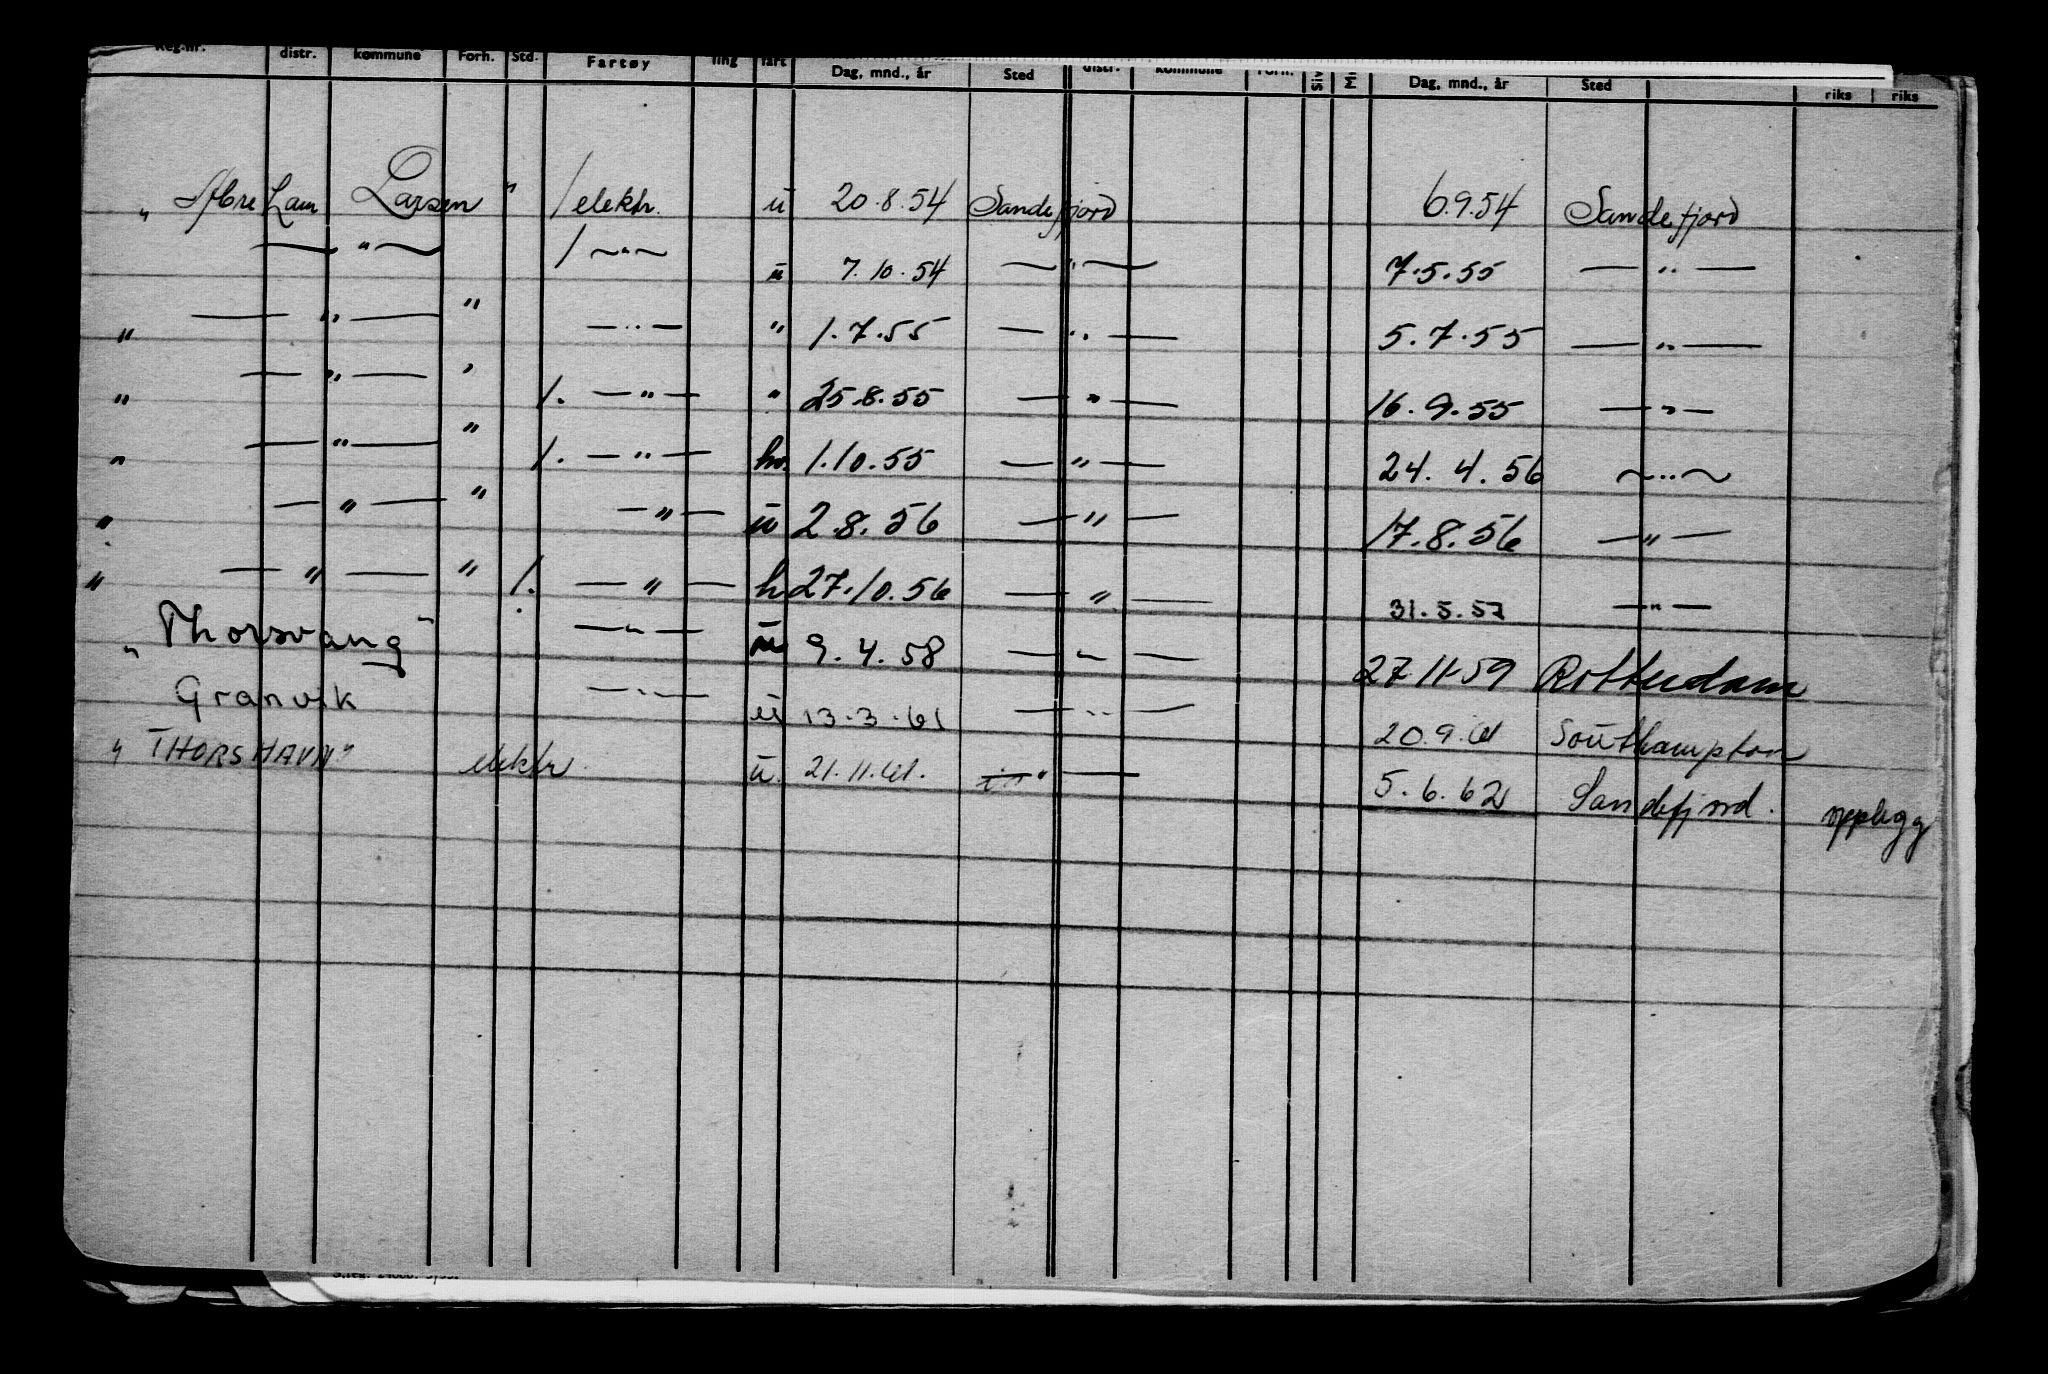 Reg.nr. distr. kommune Forh. Std. Fartøy ling fart Dag, mnd., år Sted distr. kommune Forh. Siv Mi Dag, mnd., år Sted riks riks
Larsen" 1 elektr. u 20.8.54 Sandefjord 6.9.54 Sandefjord
— " — 1 — " — u 7.10.54 — " — 7.5.55 — " —
" — " — " — " — " 1.7.55 — " — 5.7.55 — " —
" — " — " 1. — " — " 25.8.55 — " — 16.9.55 — " —
" — " — " 1. — " — hv. 1.10.55 — " — 24.4.56 — " —
" — " — " — " — u 2.8.56 — " — 17.8.56 — " —
" — " — " 1. — " — h 27.10.56 — " — 31.5.57 — " —
" Thorsvang" — " — u 9.4.58 — " — 27.11.59 Rotterdam
Granvik — " — u 13.3.61 — " — 20.9.61 Southampton
" THORSHAVN" elektr. u. 21.11.61. — " — 5.6.62 Sandefjord. opplegg